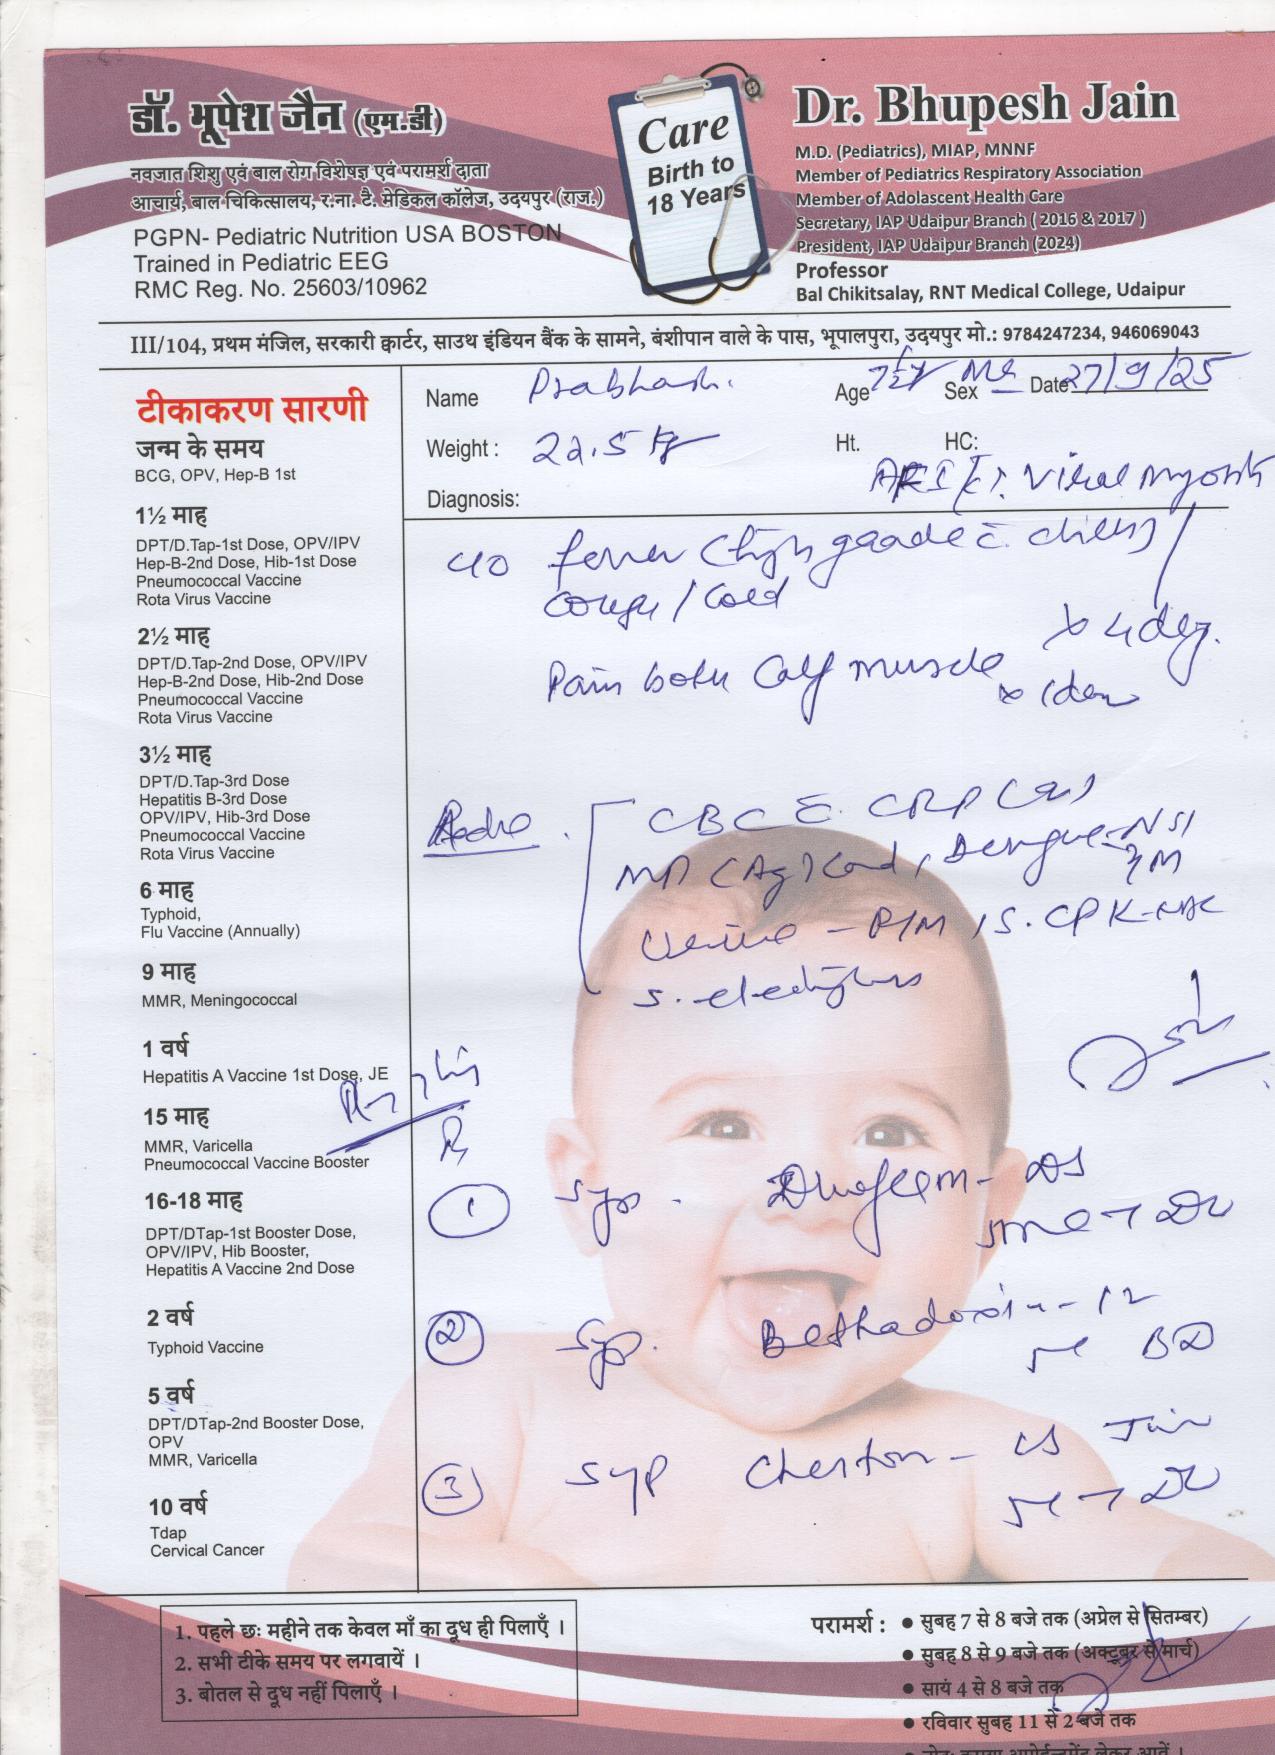 डॉ. भूपेश जैन (एम.डी)
नवजात शिशु एवं बाल रोग विशेषज्ञ एवं परामर्श दाता
आचार्य, बाल चिकित्सालय, र.ना. टै. मेडिकल कॉलेज, उदयपुर (राज.)
PGPN- Pediatric Nutrition USA BOSTON
Trained in Pediatric EEG
RMC Reg. No. 25603/10962
Care
Birth to
18 Years
Dr. Bhupesh Jain
M.D. (Pediatrics), MIAP, MNNF
Member of Pediatrics Respiratory Association
Member of Adolascent Health Care
Secretary, IAP Udaipur Branch ( 2016 & 2017 )
President, IAP Udaipur Branch (2024)
Professor
Bal Chikitsalay, RNT Medical College, Udaipur
III/104, प्रथम मंजिल, सरकारी क्वार्टर, साउथ इंडियन बैंक के सामने, बंशीपान वाले के पास, भूपालपुरा, उदयपुर मो.: 9784247234, 946069043
टीकाकरण सारणी
जन्म के समय
BCG, OPV, Hep-B 1st
1½ माह
DPT/D.Tap-1st Dose, OPV/IPV
Hep-B-2nd Dose, Hib-1st Dose
Pneumococcal Vaccine
Rota Virus Vaccine
2½ माह
DPT/D.Tap-2nd Dose, OPV/IPV
Hep-B-2nd Dose, Hib-2nd Dose
Pneumococcal Vaccine
Rota Virus Vaccine
3½ माह
DPT/D.Tap-3rd Dose
Hepatitis B-3rd Dose
OPV/IPV, Hib-3rd Dose
Pneumococcal Vaccine
Rota Virus Vaccine
6 माह
Typhoid,
Flu Vaccine (Annually)
9 माह
MMR, Meningococcal
1 वर्ष
Hepatitis A Vaccine 1st Dose, JE
15 माह
MMR, Varicella
Pneumococcal Vaccine Booster
16-18 माह
DPT/DTap-1st Booster Dose,
OPV/IPV, Hib Booster,
Hepatitis A Vaccine 2nd Dose
2 वर्ष
Typhoid Vaccine
5 वर्ष
DPT/DTap-2nd Booster Dose,
OPV
MMR, Varicella
10 वर्ष
Tdap
Cervical Cancer
Name Prabhash. Age Sex Date 27/9/25
Weight : 22.5 kg Ht. HC:
Diagnosis: Viral
C/O fever (high grade c̄ chills)
cough / cold
x 4 day.
Pain both calf muscle
x 1 day
CBC c̄ CRP
MP (Ag) Card, Dengue-NS1
IgM
Urine - R/M, S. CPK-
S. electrolytes
Rx
1 Syp. - DS
2 Syp. Bethadoxin-12
BD
3 Syp Cheston - CS
1. पहले छः महीने तक केवल माँ का दूध ही पिलाएँ ।
2. सभी टीके समय पर लगवायें ।
3. बोतल से दूध नहीं पिलाएँ ।
परामर्श : ● सुबह 7 से 8 बजे तक (अप्रेल से सितम्बर)
● सुबह 8 से 9 बजे तक (अक्टूबर से मार्च)
● सायं 4 से 8 बजे तक
● रविवार सुबह 11 से 2 बजे तक